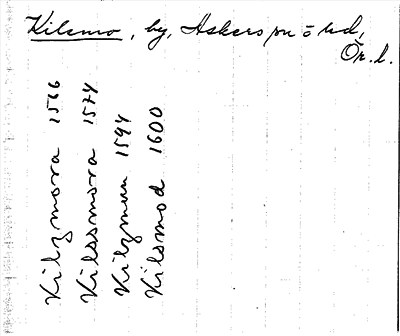 Kilsmo, by, Askers sn o hd,
Ör. l.
Kilzmora 1566
Kilssmora 1574
Kilzmun 1594
Kilsmod 1600